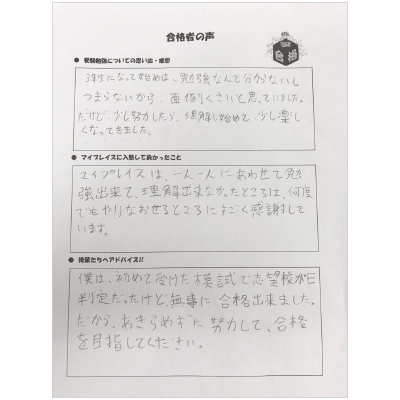 合格者の声
合格
● 受験勉強についての思い出・感想
3年生になって始めは、勉強なんて分からないし
つまらないから、面倒くさいと思っていました。
だけど、少し努力したら、理解し始めて、少し楽し
くなってきました。
● マイプレイスに入塾して良かったこと
マイプレイスは、一人一人にあわせて勉
強出来て、理解出来なかったところは、何度
でもやりなおせるところにすごく感謝して
います。
● 後輩たちへアドバイス!!
僕は、初めて受けた模試で志望校がE
判定だったけど無事に合格出来ました。
だから、あきらめずに努力して、合格
を目指してください。